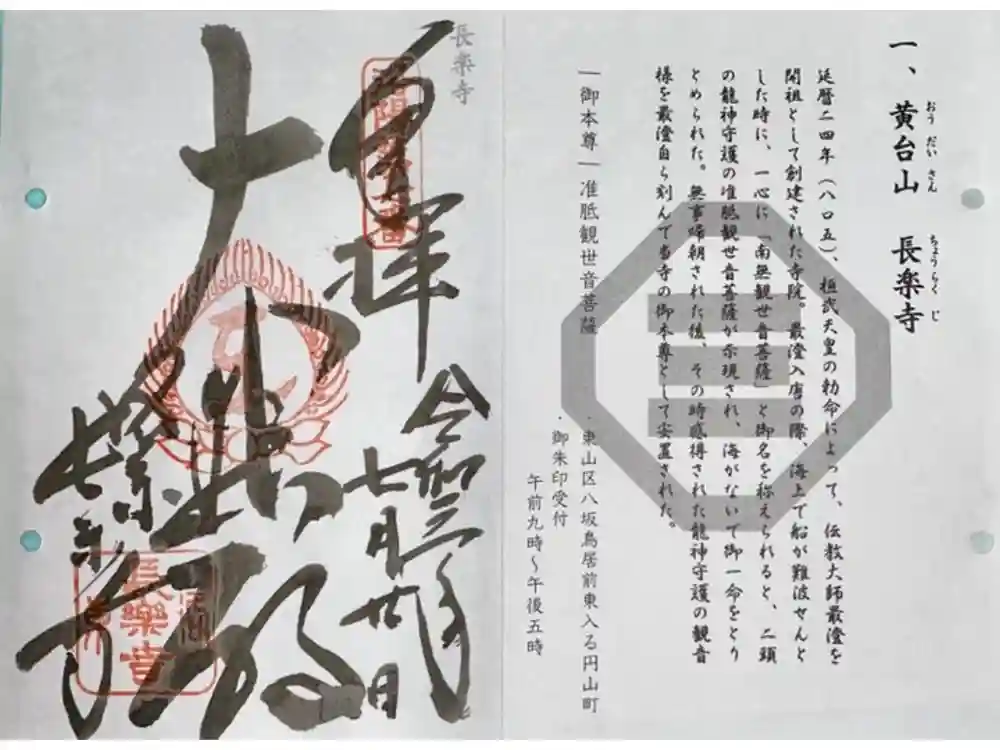 一、黄台山 長楽寺
おう だい さん ちょう らく じ
延暦二四年（八〇五）、桓武天皇の勅命によって、伝教大師最澄を
開祖として創建された寺院。最澄入唐の際、海上で船が難波せんと
した時に、一心に「南無観世音菩薩」と御名を称えられると、二頭
の龍神守護の准胝観世音菩薩が示現され、海がないで御一命をとり
とめられた。無事帰朝された後、その時感得された龍神守護の観音
様を最澄自ら刻んで当寺の御本尊として安置された。
―御本尊― 准胝観世音菩薩
・東山区八坂鳥居前東入る円山町
・御朱印受付
午前九時～午後五時
長楽寺
奉拝
令和三年
七月廿日
大悲殿
長楽寺
長樂寺